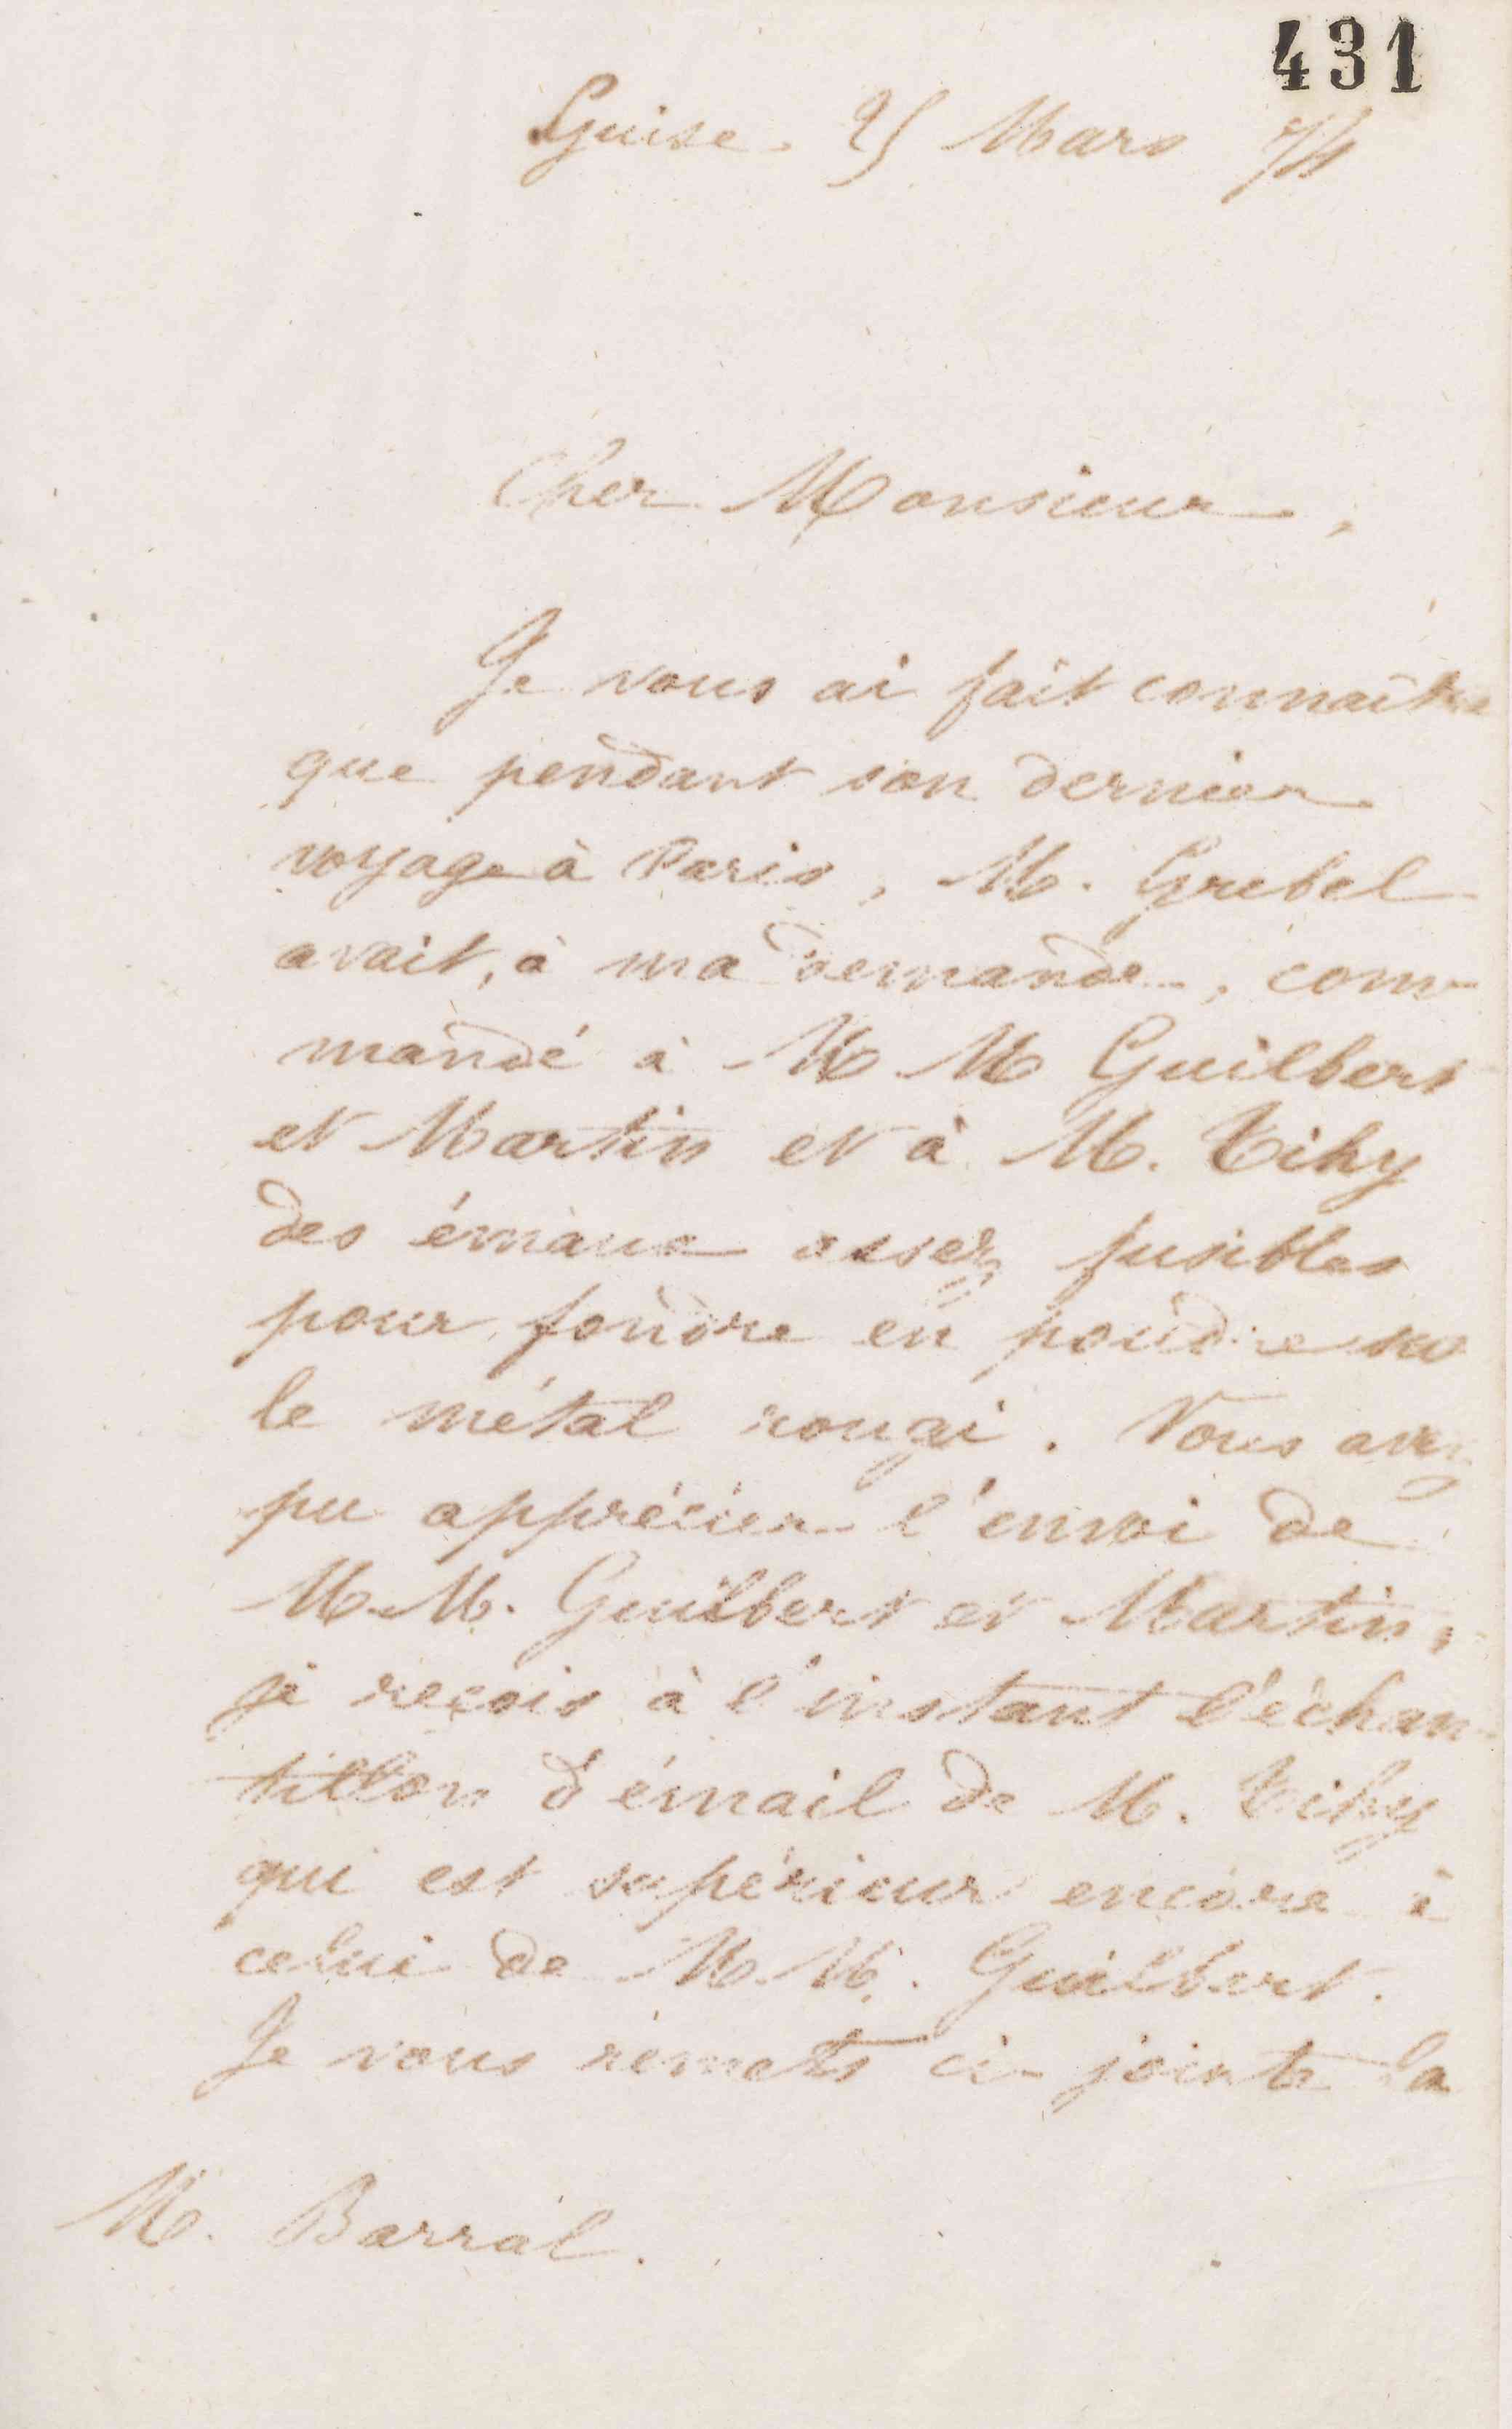 431
Guise. 25 Mars 74
Cher Monsieur,
Je vous ai fait connaître
que pendant son dernier
voyage à Paris, M. Grebel
avait, à ma demande, com-
mandé à M M Guilbert
et Martin et à M. Tihy
des émaux assez fusibles
pour fondre en poudre sur
le métal rougi. Vous avez
pu apprécier l'envoi de
M. M. Guilbert et Martin,
je reçois à l'instant l'échan-
tillon d'émail de M. Tihy
qui est supérieur encore à
celui de M. M. Guilbert.
Je vous remets ci-jointe la
M. Barral.